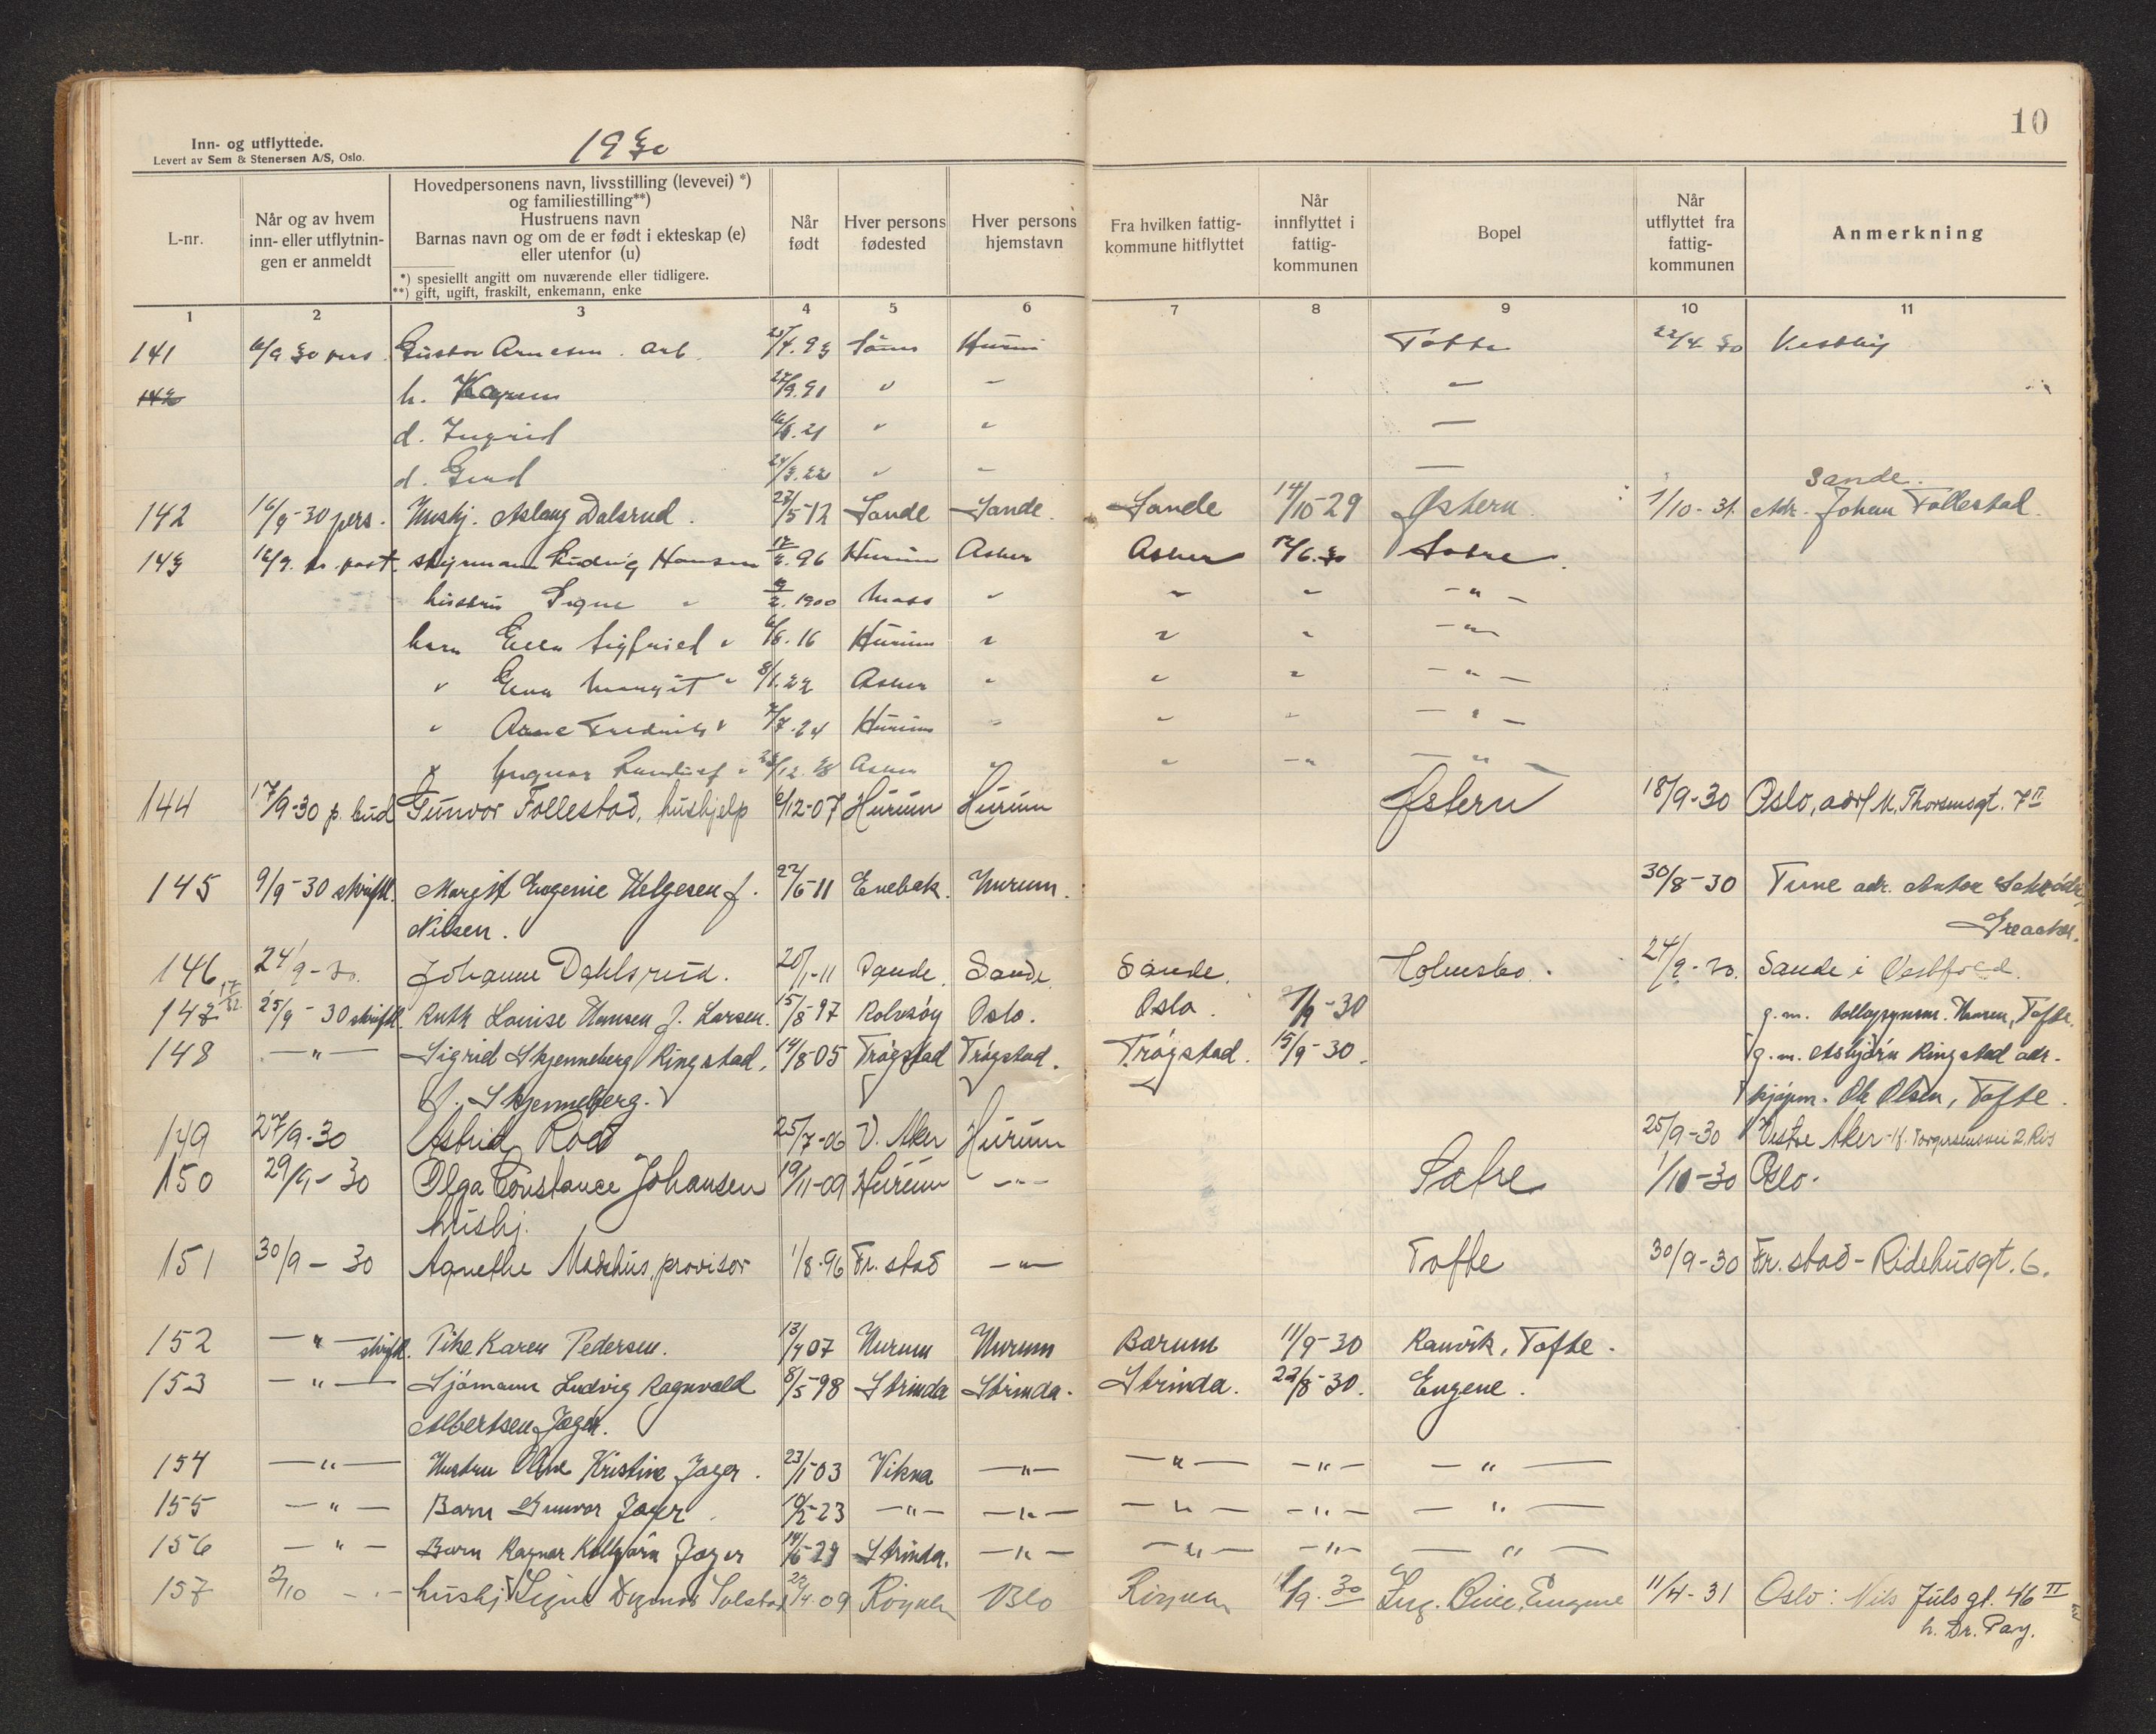 10
Inn- og utflyttede.
Levert av Sem & Stenersen A/S, Oslo.
1930
L-nr.
Når og av hvem inn- eller utflytnin-gen er anmeldt
Hovedpersonens navn, livsstilling (levevei) *)
og familiestilling**)
Hustruens navn
Barnas navn og om de er født i ekteskap (e)
eller utenfor (u)
*) spesiellt angitt om nuværende eller tidligere.
**) gift, ugift, fraskilt, enkemann, enke
Når født
Hver persons fødested
Hver persons hjemstavn
Fra hvilken fattig-kommune hitflyttet
Når innflyttet i fattig-kommunen
Bopel
Når utflyttet fra fattig-kommunen
Anmerkning
1 2 3 4 5 6 7 8 9 10 11
141 16/9 30 pers. Gustav Arnesen. arb. Hurum Tofte 22/4 30 Vestby
142 h. Kagrum 27/9.91 " - -
d. Ingrid 21 " " -
d. Gerd 24/3.22 " - -
Sande.
142 16/9-30 pers. Hushj. Aslaug Dalsrud. 27/5-12 Sande Sande. Sande 14/10-29 Østern 1/10-31. Adr. Johan Follestad.
143 16/9. pr. post. styrmann Ludvig Hansen 96 Hurum Asker Asker 12/6.30 Sætre.
hustru Signe " 1900 Moss " " " -"-
barn Ellen Sigfried " 6/8.16 Hurum " " " -"-
" Erna Margit " 8/1.22 Asker " " " -"-
" Arne Fredrik " 7/7.24 Hurum " " " -"-
" Ingvar " Asker " " -" -"-
144 17/9-30 p. bud Gunvor Follestad, hushjelp 6/12-07 Hurum Hurum Østern 18/9-30 Oslo, adr/ M. Thoresensgt. 7 II
145 9/9-30 skriftl. Margit Eugenie Helgesen f. 22/6-11 Enebak. Hurum. 30/8-30 Tune adr. Anton
Nilsen. Greaaker.
146 24/9-30. Johanne Dahlsrud. 20/1-11 Sande. Sande. Sande. Holmsbo. 24/9-30. Sande i Vestfold.
147 25/9-30 skriftl. Ruth Louise Hansen f. Larsen. 15/8-97 Rolvsøy Oslo. Oslo. 1/9-30 g.m. Hansen, Tofte.
148 -"- Sigrid Skjenneberg Ringstad, 14/8-05 Trøgstad Trøgstad. Trøgstad. 15/9-30. g.m. Asbjørn Ringstad adr.
f. Skjenneberg. kjøpm. Ole Olsen, Tofte.
149 27/9-30 Astrid Roed 25/7-06 V. Aker Hurum 25/9-30 Vestre Aker - H. Torgersensvei 2. Ris
150 29/9-30 Olga Constance Johansen 19/11-09 Hurum -"- Sætre 1/10-30 Oslo.
hushj.
151 30/9-30 Agnethe Madshus, provisor 1/8-96 Fr.stad -"- Tofte 30/9-30 Fr.stad - Ridehusgt. 6.
152 -"- skriftl. Pike Karen Pedersen. 13/4 07 Hurum Hurum Bærum 11/9-30 Ranvik, Tofte.
153 -"- Sjømann Ludvig Ragnvald 8/5-98 Strinda Strinda. Strinda. 22/8-30. Engene.
Albertsen Jæger.
154 -"- Hustru Oline Kristine Jæger. 23/1-03 Vikna -"- -"- -"- -"-
155 -"- Barn Gunvor Jæger. 23 -"- -"- -"- -"- -"-
156 -"- Barn Ragnar Kolbjørn Jæger 14/6-29 Strinda. -"- -"- -"- -"-
157 2/10 -"- hushj. Signe Dagmar Solstad 22/4-09 Røyken Oslo Røyken 11/9.30 Ing. Engene 11/4-31 Oslo: Nils Juls gt. 46 II
h. Dr. Pay.